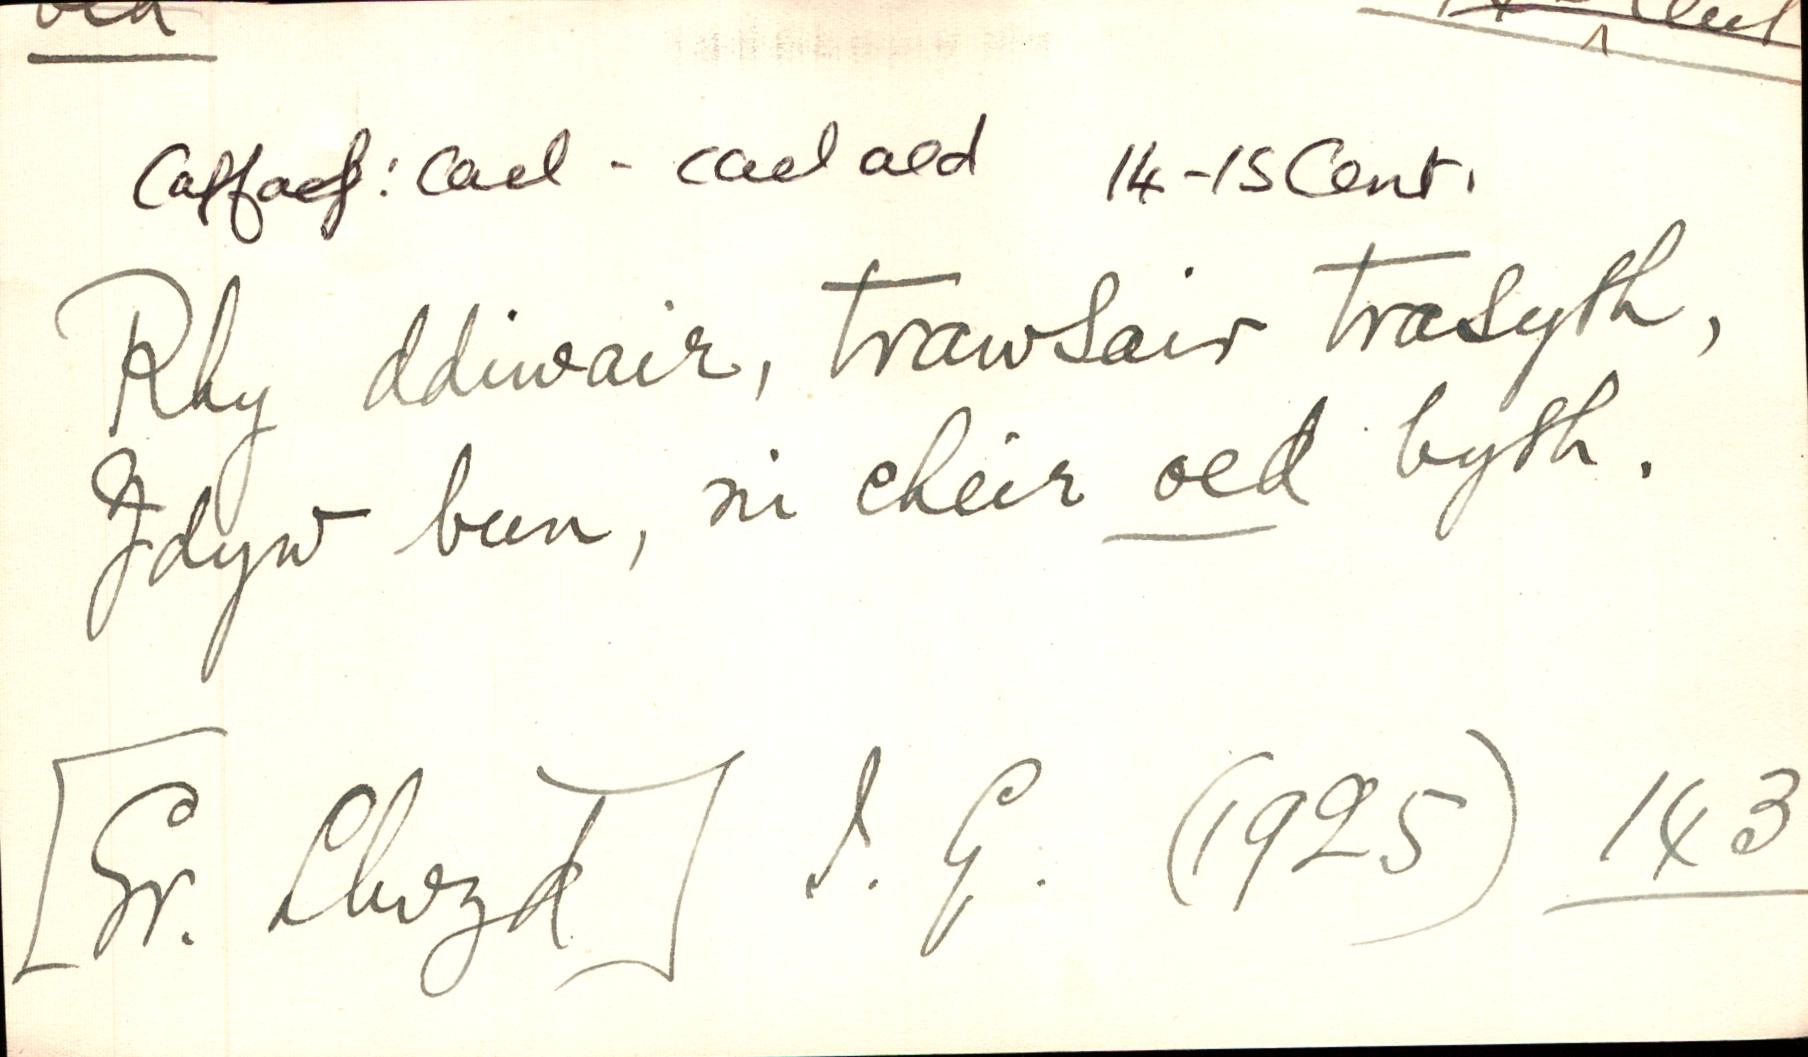 oed
Caffaf: Cael - cael oed 14-15 Cent.
Rhy ddiwair, trawsair trasyth,
Ydyw bun, ni cheir oed byth.
[Gr. Llwyd] I. G. (1925) 143